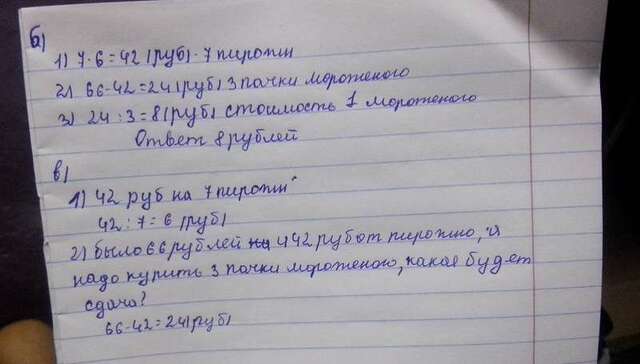 б)
1) 7·6=42 (руб) - 7 пирожн
2) 66-42=24 (руб) 3 пачки мороженого
3) 24:3=8 (руб) стоимость 1 мороженого
Ответ 8 рублей
в)
1) 42 руб на 7 пирожн
42:7=6 (руб)
2) было 66 рублей 42 руб от пирожно, и
надо купить 3 пачки мороженого, какая будет
сдача?
66-42=24(руб)